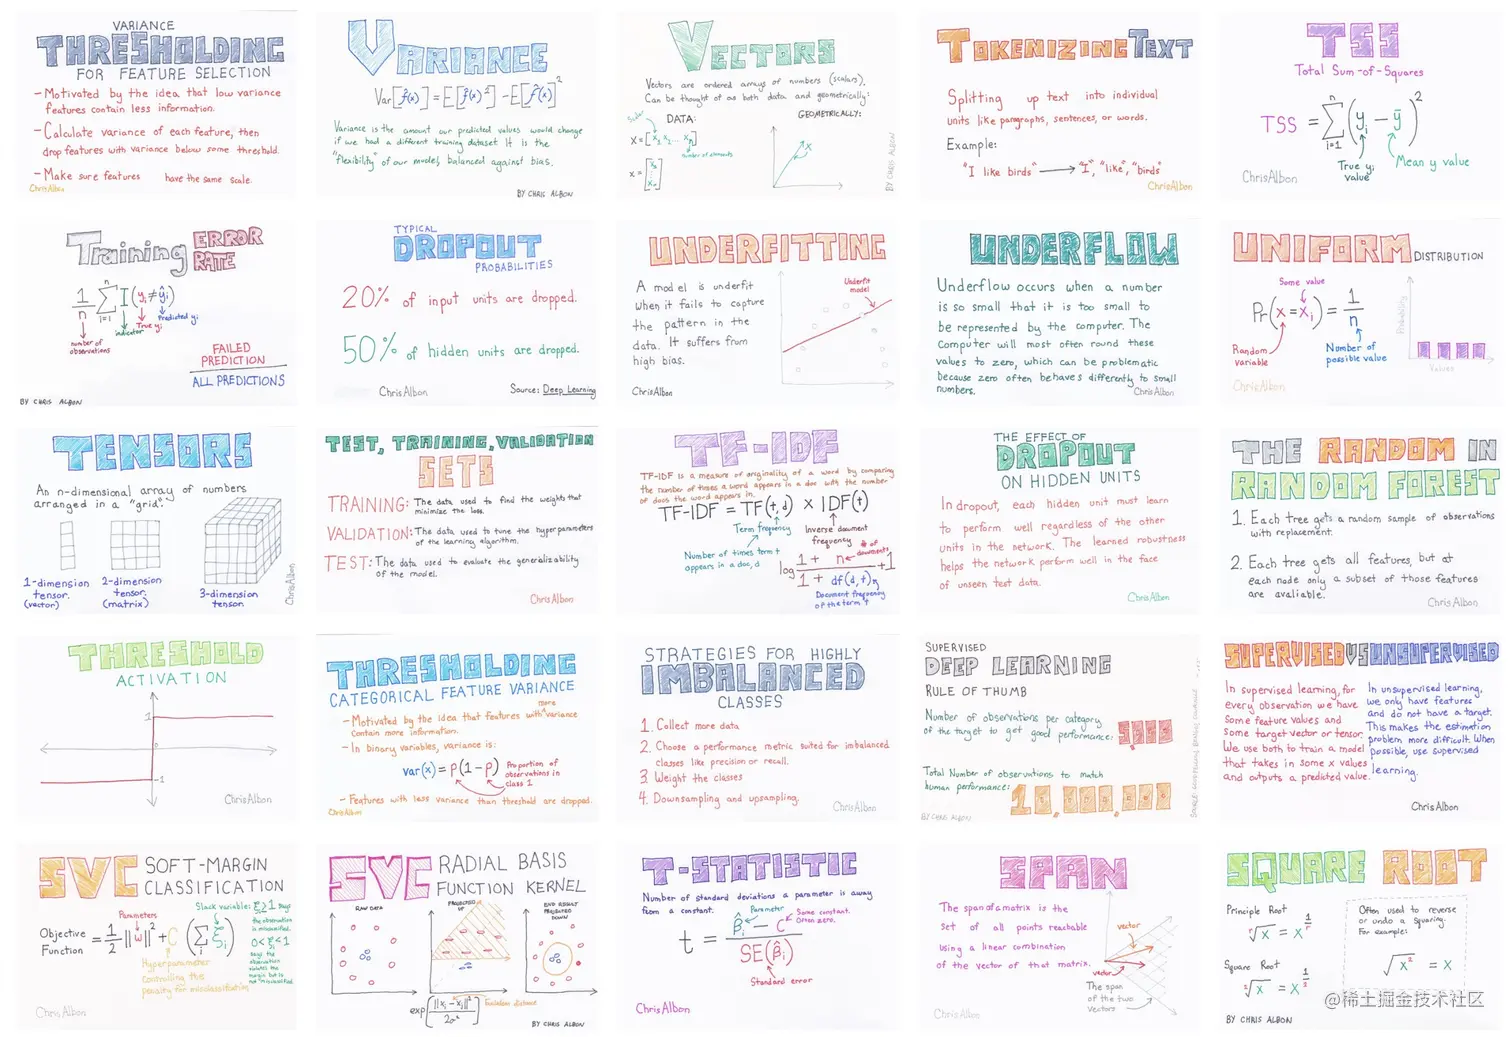 VARIANCE
THRESHOLDING
FOR FEATURE SELECTION
- Motivated by the idea that low variance
features contain less information.
- Calculate variance of each feature, then
drop features with variance below some threshold.
- Make sure features have the same scale.
ChrisAlbon
VARIANCE
Var[f̂(x)] = E[f̂(x)²] - E[f̂(x)]²
Variance is the amount our predicted values would change
if we had a different training dataset. It is the
"flexibility" of our model, balanced against bias.
BY CHRIS ALBON
VECTORS
Vectors are ordered arrays of numbers (scalars).
Can be thought of as both data and geometrically:
DATA:
GEOMETRICALLY:
Scalar
x = [x₁ x₂ ... xₙ]
number of elements
x = [x₁ : xₙ]
X
BY CHRIS ALBON
TOKENIZING TEXT
Splitting up text into individual
units like paragraphs, sentences, or words.
Example:
"I like birds" → "I", "like", "birds"
ChrisAlbon
TSS
Total Sum-of-Squares
TSS = n∑i=1 (yᵢ - ȳ)²
True yᵢ
value
Mean y value
ChrisAlbon
Training ERROR
RATE
1/n n∑i=1 I(yᵢ ≠ ŷᵢ)
number of
observations
indicator
True yᵢ
Predicted yᵢ
FAILED
PREDICTION
ALL PREDICTIONS
BY CHRIS ALBON
TYPICAL
DROPOUT
PROBABILITIES
20% of input units are dropped.
50% of hidden units are dropped.
ChrisAlbon
Source: Deep Learning
UNDERFITTING
A model is underfit
when it fails to capture
the pattern in the
data. It suffers from
high bias.
Underfit
model
ChrisAlbon
UNDERFLOW
Underflow occurs when a number
is so small that it is too small to
be represented by the computer. The
Computer will most often round these
values to zero, which can be problematic
because zero often behaves differently to small
numbers.
ChrisAlbon
UNIFORM DISTRIBUTION
Some value
Pr(x = xᵢ) = 1/n
Random
variable
Number of
possible value
Probability
Values
ChrisAlbon
TENSORS
An n-dimensional array of numbers
arranged in a "grid".
1-dimension
tensor.
(vector)
2-dimension
tensor.
(matrix)
3-dimension
tensor
ChrisAlbon
TEST, TRAINING, VALIDATION
SETS
TRAINING: The data used to find the weights that
minimize the loss.
VALIDATION: The data used to tune the hyperparameters
of the learning algorithm.
TEST: The data used to evaluate the generalizability
of the model.
ChrisAlbon
TF-IDF
TF-IDF is a measure of originality of a word by comparing
the number of times a word appears in a doc with the number
of docs the word appears in.
TF-IDF = TF(t, d) × IDF(t)
Term frequency
Inverse document
frequency
Number of times term t
appears in a doc, d
# of
documents
log 1 + n / 1 + df(d, t) + 1
Document frequency
of the term t
THE EFFECT OF
DROPOUT
ON HIDDEN UNITS
In dropout, each hidden unit must learn
to perform well regardless of the other
units in the network. The learned robustness
helps the network perform well in the face
of unseen test data.
ChrisAlbon
THE RANDOM IN
RANDOM FOREST
1. Each tree gets a random sample of observations
with replacement.
2. Each tree gets all features, but at
each node only a subset of those features
are avaliable.
ChrisAlbon
THRESHOLD
ACTIVATION
1
0
-1
ChrisAlbon
THRESHOLDING
CATEGORICAL FEATURE VARIANCE
- Motivated by the idea that features with more variance
Contain more information.
- In binary variables, variance is:
var(x) = p(1 - p)
Proportion of
observations in
class 1
- Features with less variance than threshold are dropped.
ChrisAlbon
STRATEGIES FOR HIGHLY
IMBALANCED
CLASSES
1. Collect more data
2. Choose a performance metric suited for imbalanced
classes like precision or recall.
3. Weight the classes
4. Downsampling and upsampling.
ChrisAlbon
SUPERVISED
DEEP LEARNING
RULE OF THUMB
Number of observations per category
of the target to get good performance:
5,000
Total Number of observations to match
human performance:
10,000,000
BY CHRIS ALBON
SUPERVISED VS UNSUPERVISED
In supervised learning, for
every observation we have
some feature values and
some target vector or tensor.
We use both to train a model
that takes in some x values
and outputs a predicted value.
In unsupervised learning,
we only have features
and do not have a target.
This makes the estimation
problem more difficult. When
possible, use supervised
learning.
ChrisAlbon
SVC SOFT-MARGIN
CLASSIFICATION
Parameters
Objective
Function = 1/2 ||w||² + C (∑i ξᵢ)
Hyperparameter
controlling the
penalty for misclassification
Slack variable: ξ ≥ 1 says
the observation
is misclassified.
0 < ξ < 1
says the
observation
violates the
margin but is
not misclassified.
ChrisAlbon
SVC RADIAL BASIS
FUNCTION KERNEL
RAW DATA
PROJECTED
UP
END RESULT
PROJECTED
DOWN
exp(||xᵢ - xⱼ||² / 2σ²)
Euclidean distance
BY CHRIS ALBON
T-STATISTIC
Number of standard deviations a parameter is away
from a constant.
Parameter
Some constant.
Often zero.
t = β̂ᵢ - C / SE(β̂ᵢ)
Standard error
ChrisAlbon
SPAN
The span of a matrix is the
set of all points reachable
using a linear combination
of the vector of that matrix.
vector
vector
The span
of the two
vectors
ChrisAlbon
SQUARE ROOT
Principle Root
ʳ√x = x^1/r
Square Root
²√x = x^1/2
Often used to reverse
or undo a squaring.
For example:
√x² = x
BY CHRIS ALBON
@稀土掘金技术社区